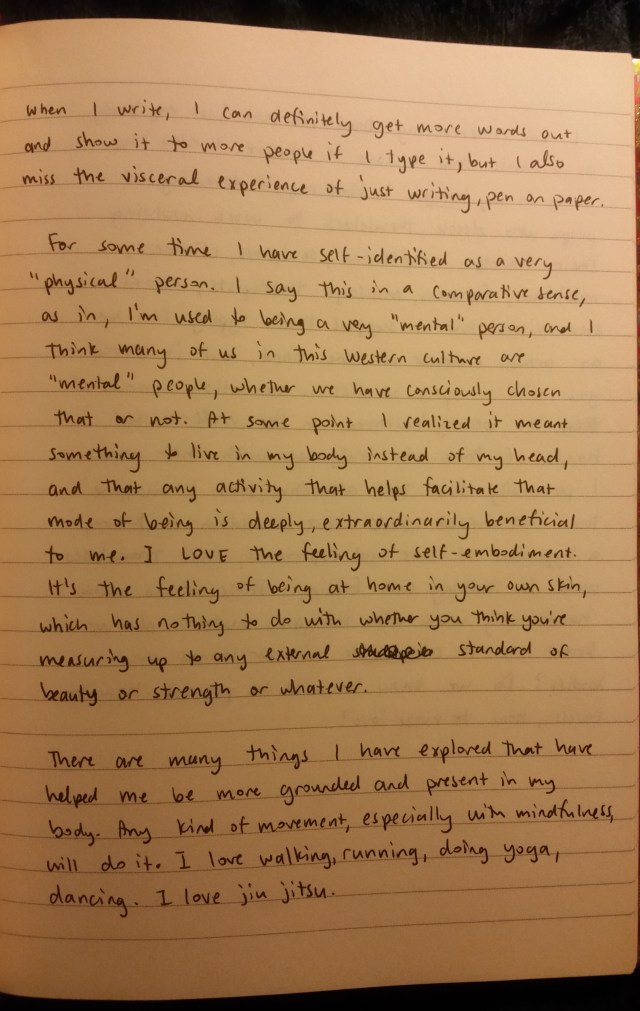 When I write, I can definitely get more words out
and show it to more people if I type it, but I also
miss the visceral experience of just writing, pen on paper.
For some time I have self-identified as a very
"physical" person. I say this in a comparative sense,
as in, I'm used to being a very "mental" person, and I
think many of us in this Western culture are
"mental" people, whether we have consciously chosen
that or not. At some point I realized it meant
something to live in my body instead of my head,
and that any activity that helps facilitate that
mode of being is deeply, extraordinarily beneficial
to me. I LOVE the feeling of self-embodiment.
It's the feeling of being at home in your own skin,
which has nothing to do with whether you think you're
measuring up to any external standard of
beauty or strength or whatever.
There are many things I have explored that have
helped me be more grounded and present in my
body. Any kind of movement, especially with mindfulness,
will do it. I love walking, running, doing yoga,
dancing. I love jiu jitsu.